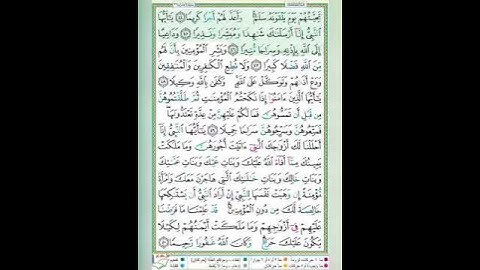 تَحِيَّتُهُمْ يَوْمَ يَلْقَوْنَهُۥ سَلَٰمٌ وَأَعَدَّ لَهُمْ أَجْرًا كَرِيمًا ٤٤ يَٰٓأَيُّهَا
ٱلنَّبِيُّ إِنَّآ أَرْسَلْنَٰكَ شَٰهِدًا وَمُبَشِّرًا وَنَذِيرًا ٤٥ وَدَاعِيًا
إِلَى ٱللَّهِ بِإِذْنِهِۦ وَسِرَاجًا مُّنِيرًا ٤٦ وَبَشِّرِ ٱلْمُؤْمِنِينَ بِأَنَّ لَهُم
مِّنَ ٱللَّهِ فَضْلًا كَبِيرًا ٤٧ وَلَا تُطِعِ ٱلْكَٰفِرِينَ وَٱلْمُنَٰفِقِينَ
وَدَعْ أَذَىٰهُمْ وَتَوَكَّلْ عَلَى ٱللَّهِ وَكَفَىٰ بِٱللَّهِ وَكِيلًا ٤٨
يَٰٓأَيُّهَا ٱلَّذِينَ ءَامَنُوٓا۟ إِذَا نَكَحْتُمُ ٱلْمُؤْمِنَٰتِ ثُمَّ طَلَّقْتُمُوهُنَّ
مِن قَبْلِ أَن تَمَسُّوهُنَّ فَمَا لَكُمْ عَلَيْهِنَّ مِنْ عِدَّةٍ تَعْتَدُّونَهَا
فَمَتِّعُوهُنَّ وَسَرِّحُوهُنَّ سَرَاحًا جَمِيلًا ٤٩ يَٰٓأَيُّهَا ٱلنَّبِيُّ إِنَّآ
أَحْلَلْنَا لَكَ أَزْوَٰجَكَ ٱلَّٰتِيٓ ءَاتَيْتَ أُجُورَهُنَّ وَمَا مَلَكَتْ
يَمِينُكَ مِمَّآ أَفَآءَ ٱللَّهُ عَلَيْكَ وَبَنَاتِ عَمِّكَ وَبَنَاتِ عَمَّٰتِكَ
وَبَنَاتِ خَالِكَ وَبَنَاتِ خَٰلَٰتِكَ ٱلَّٰتِي هَاجَرْنَ مَعَكَ وَٱمْرَأَةً
مُّؤْمِنَةً إِن وَهَبَتْ نَفْسَهَا لِلنَّبِيِّ إِنْ أَرَادَ ٱلنَّبِيُّ أَن يَسْتَنكِحَهَا
خَالِصَةً لَّكَ مِن دُونِ ٱلْمُؤْمِنِينَ قَدْ عَلِمْنَا مَا فَرَضْنَا
عَلَيْهِمْ فِيٓ أَزْوَٰجِهِمْ وَمَا مَلَكَتْ أَيْمَٰنُهُمْ لِكَيْلَا
يَكُونَ عَلَيْكَ حَرَجٌ وَكَانَ ٱللَّهُ غَفُورًا رَّحِيمًا ٥٠